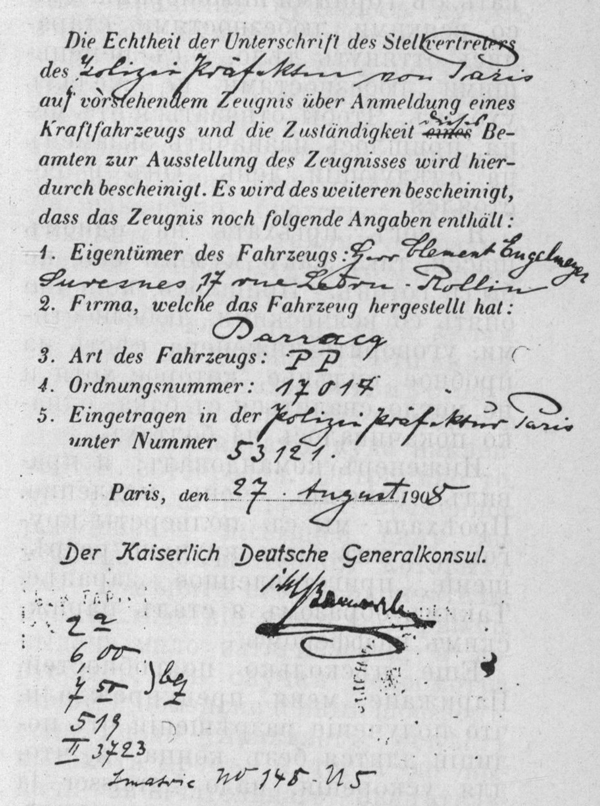 Die Echtheit der Unterschrift des Stellvertreters
des Polizei Präfektur von Paris
auf vorstehendem Zeugnis über Anmeldung eines
Kraftfahrzeugs und die Zuständigkeit dieses eines Be-
amten zur Ausstellung des Zeugnisses wird hier-
durch bescheinigt. Es wird des weiteren bescheinigt,
dass das Zeugnis noch folgende Angaben enthält:
1. Eigentümer des Fahrzeugs: Herr Clement Engelmeyer
Suresnes, 17 rue Ledru-Rollin
2. Firma, welche das Fahrzeug hergestellt hat:
Darracq
3. Art des Fahrzeugs: PP
4. Ordnungsnummer: 17017
5. Eingetragen in der Polizei Präfektur Paris
unter Nummer
53121.
Paris, den 27. August 1908
Der Kaiserlich Deutsche Generalkonsul.
22
6,00
7,50
519
II 3723
Imatric No 145-